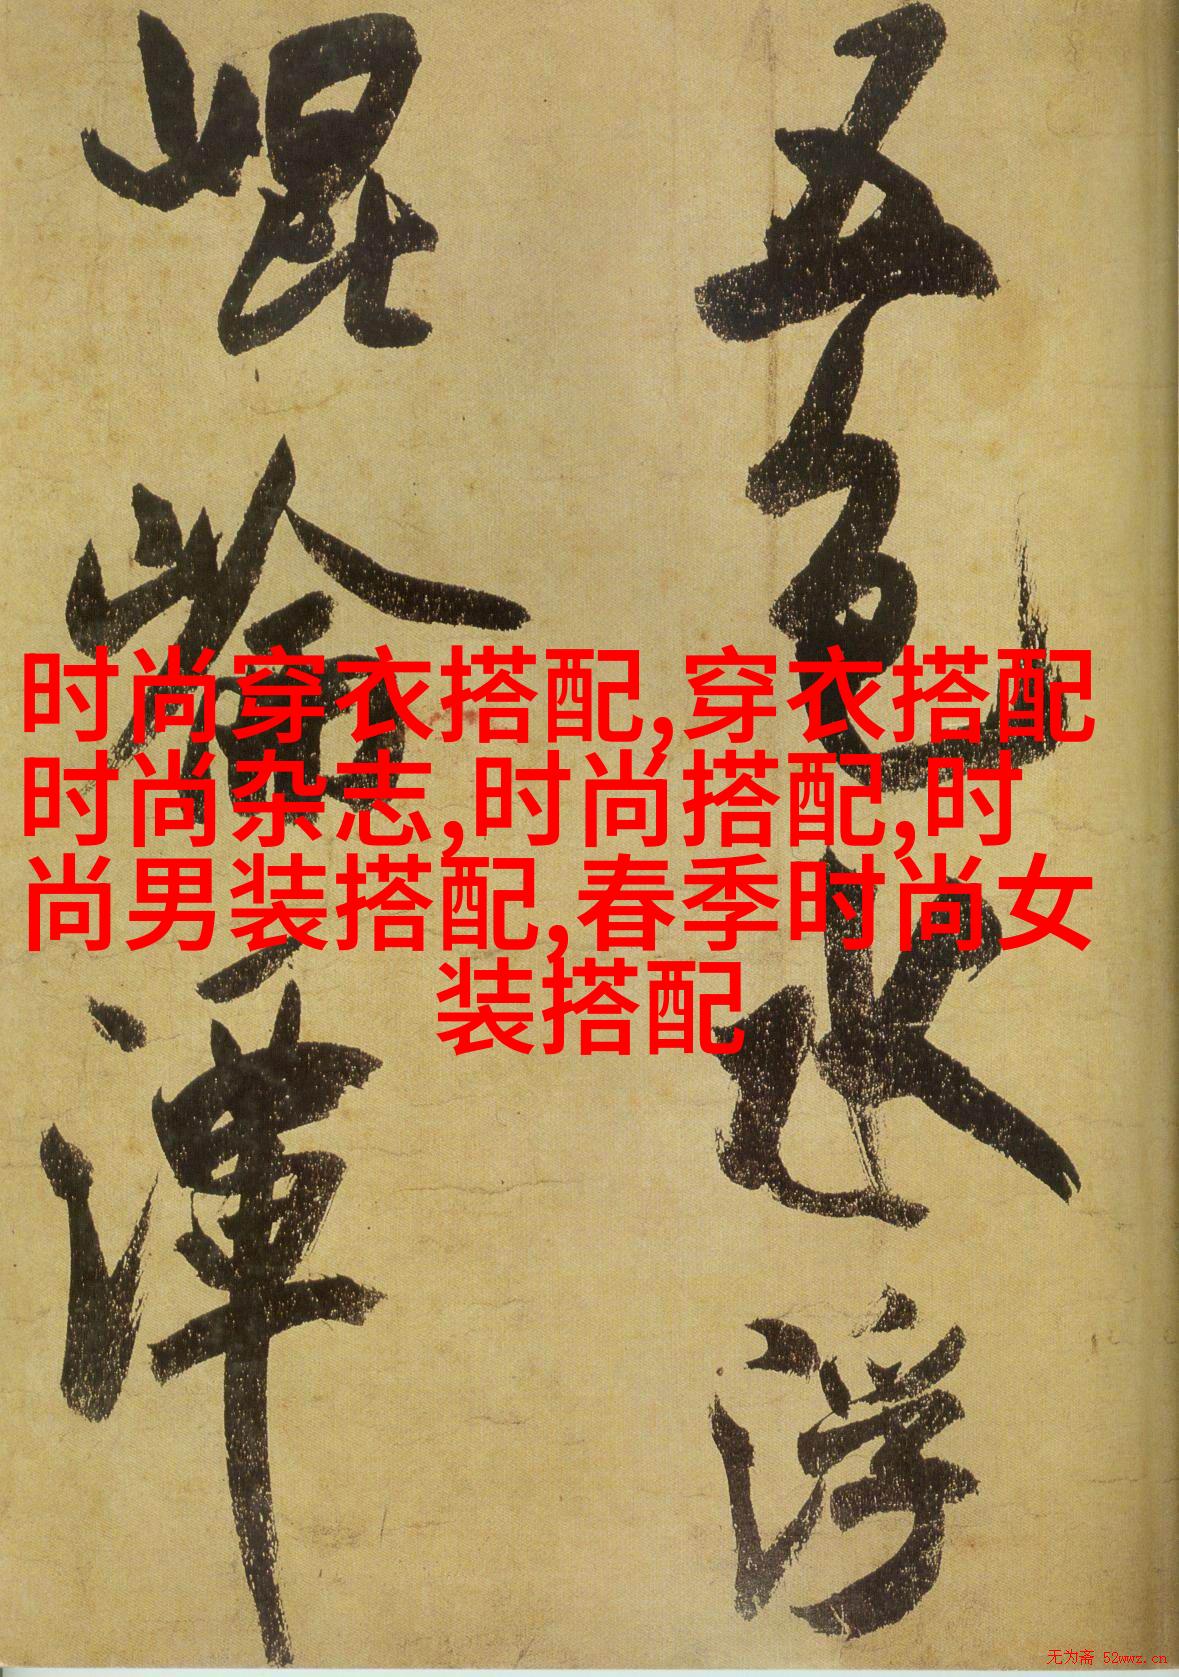 五色水浮
崐崘渾
时尚穿衣搭配,穿衣搭配
时尚杂志,时尚搭配,时
尚男装搭配,春季时尚女
装搭配
无为斋 52wwz.cn